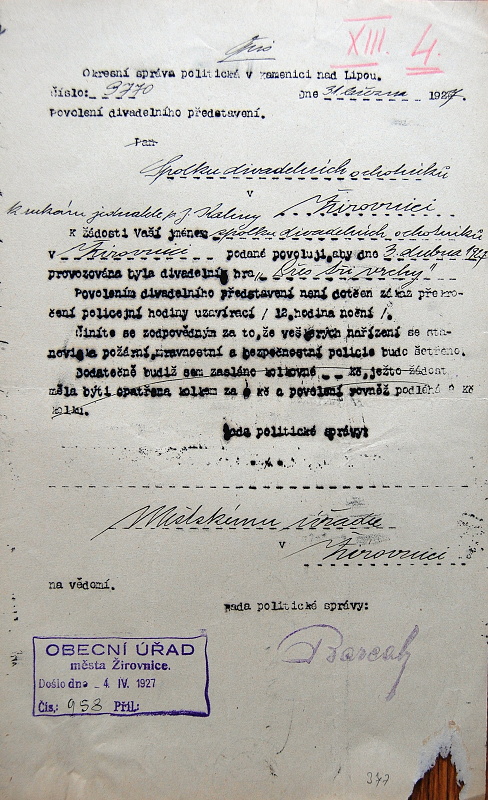 Opis
XIII. 4.
Okresní správa politická v Kamenici nad Lipou.
Číslo: 9770 Dne 31. března 1927
Povolení divadelního představení.
Pan
Spolku divadelních ochotníků
v
k rukám jednatele p. J. Kaliny Žirovnici
K žádosti Vaší jménem spolku divadelních ochotníků
v Žirovnici podané povoluji, aby dne 3. dubna 1927
provozována byla divadelní hra „Přes tři vrchy"
Povolením divadelního představení není dotčen zákaz překro-
čení policejní hodiny uzavírací / 12. hodina noční /.
Činíte se zodpovědným za to, že veškerých nařízení se sta-
noviska požární, mravnostní a bezpečnostní policie bude šetřeno.
Dodatečně budiž sem zasláno kolkovné kč, ježto žádost
měla býti opatřena kolkem za kč a povolení rovněž podléhá kč
kolku.
Rada politické správy:
Městskému úřadu
v Žirovnici
na vědomí.
Rada politické správy:
OBECNÍ ÚŘAD
města Žirovnice.
Došlo dne 4. IV. 1927
Čís.: 958 Příl.:
377